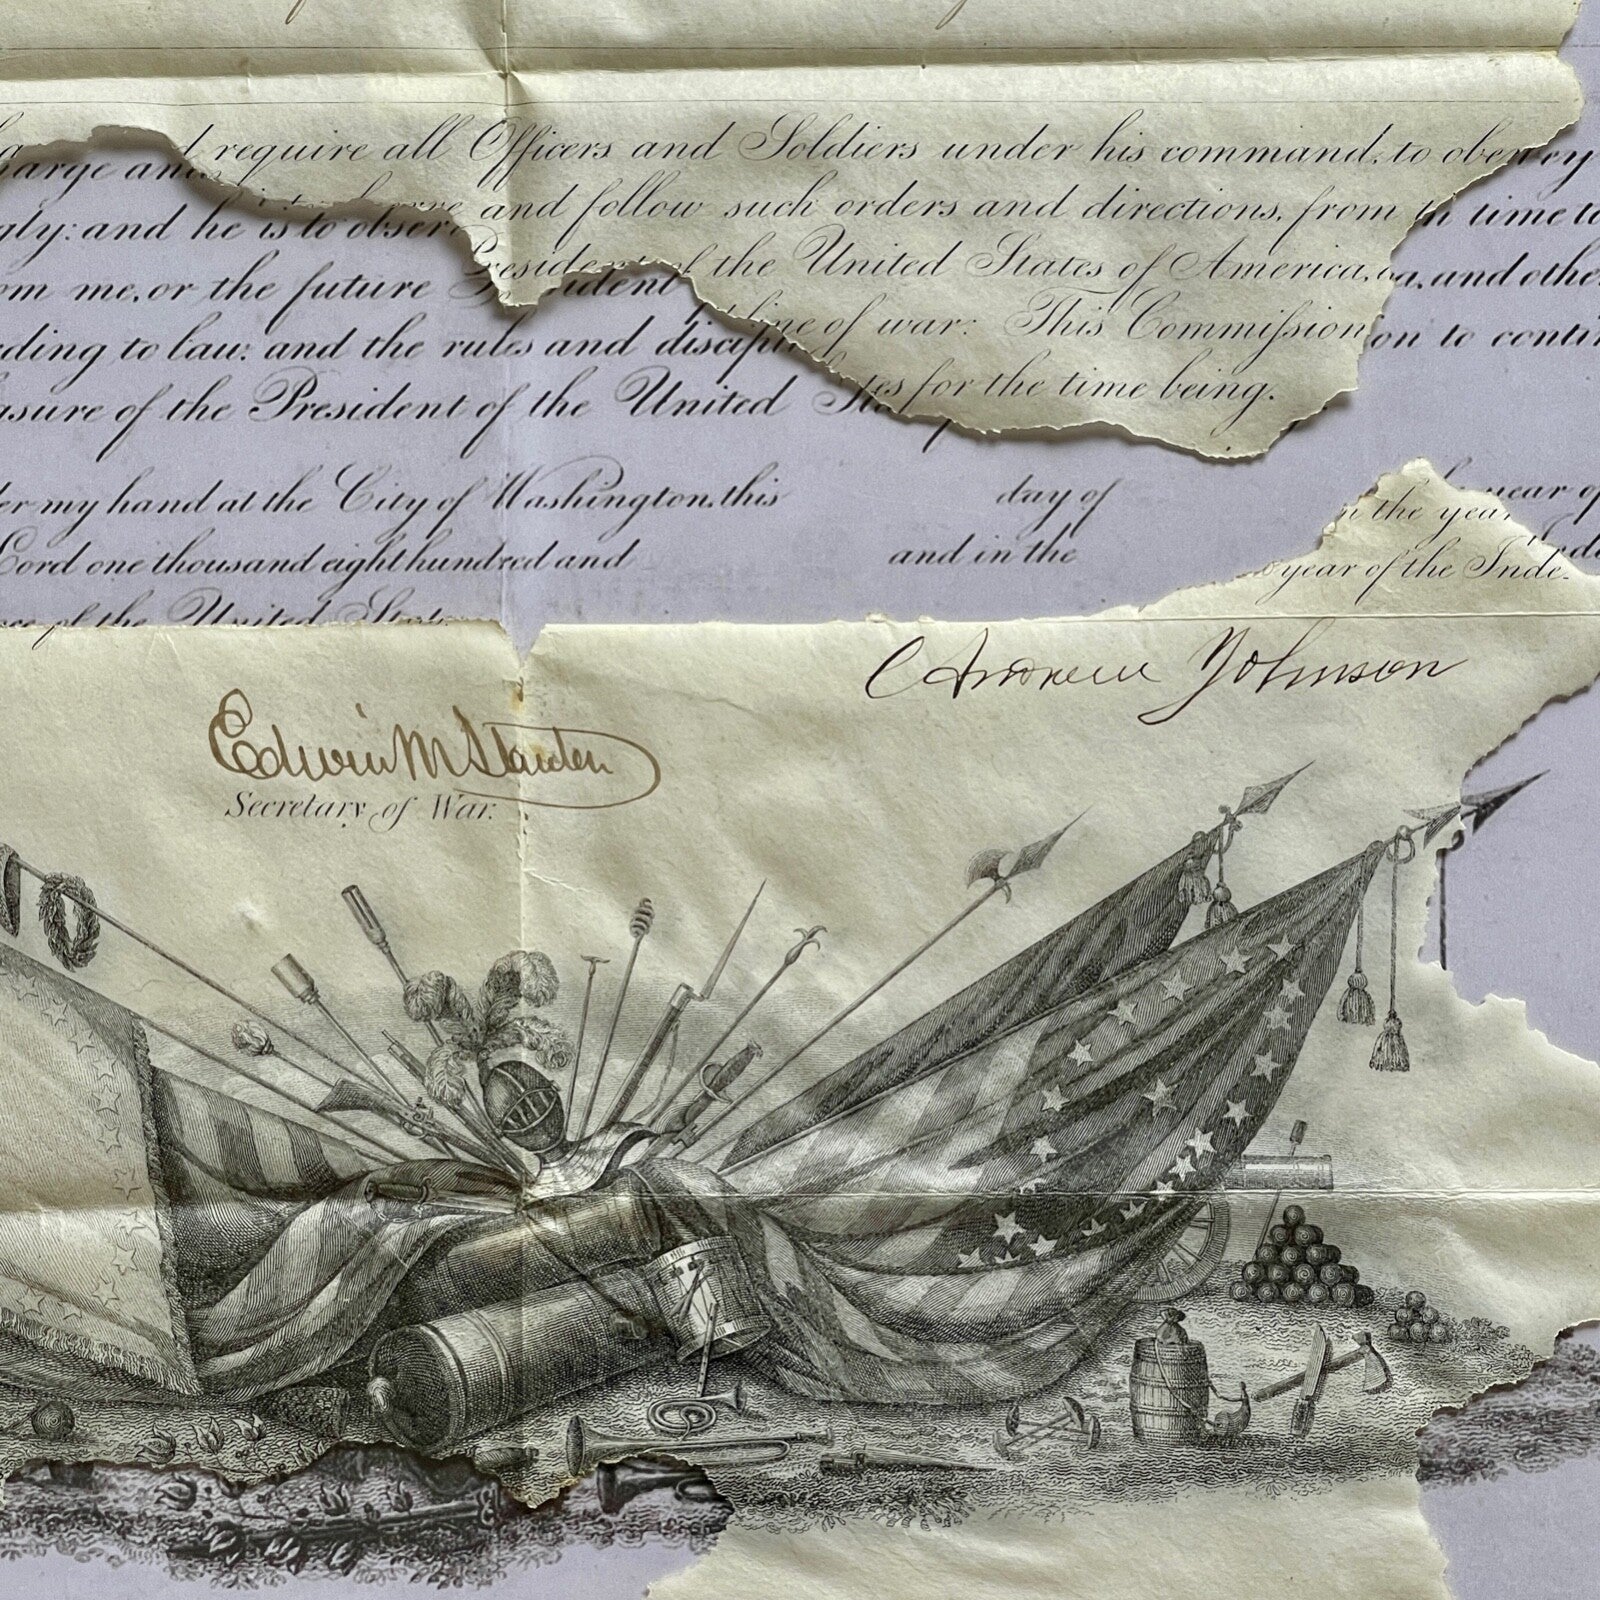 and require all Officers and Soldiers under his command, to obey
harge and
gly: and he is to observe and follow such orders and directions, from time to
om me, or the future President of the United States of America, and other
ding to law: and the rules and discipline of war: This Commission to contin
asure of the President of the United States for the time being.
er my hand at the City of Washington, this day of in the year of
Lord one thousand eight hundred and and in the year of the Inde.
ce of the United States
Andrew Johnson
Edwin M Stanton
Secretary of War.